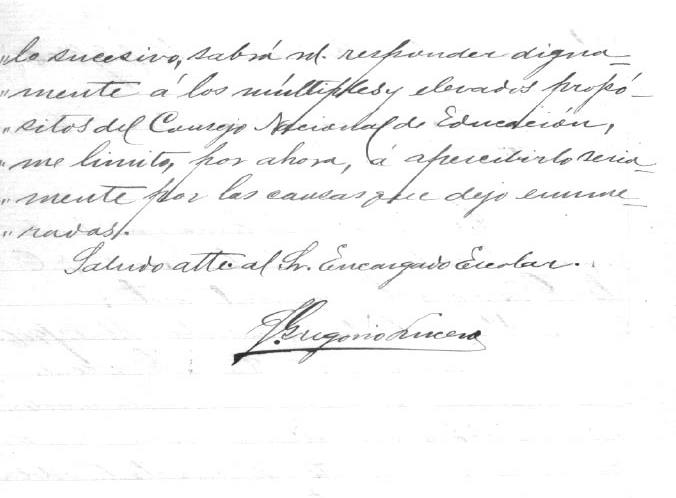 „lo sucesivo, sabrá vd. responder digna—
„mente á los múltiples y elevados propó—
„sitos del Consejo Nacional de Educación,
„me limito, por ahora, á apercibirlo seria—
„mente por las causas que dejo enume—
„radas.
Saludo atte. al Sr. Encargado Escolar.
Gregorio Lucero